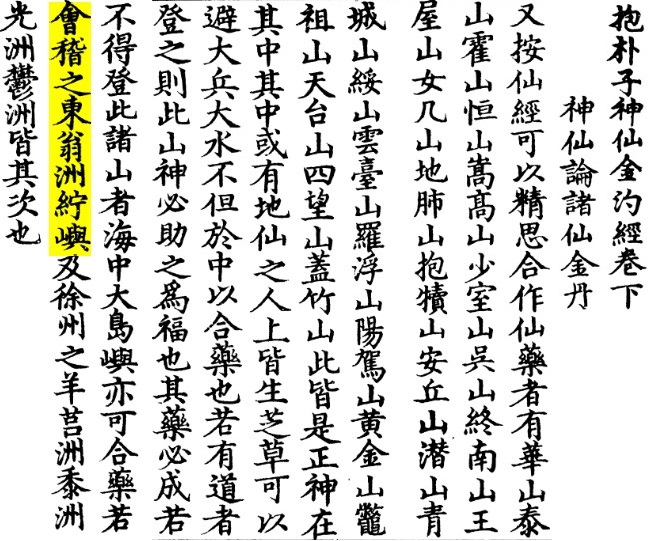 抱朴子神仙金汋經卷下
神仙論諸仙金丹
又按仙經可以精思合作仙藥者有華山泰
山霍山恒山嵩高山少室山吳山終南山王
屋山女几山地肺山抱犢山安丘山潛山青
城山綏山雲臺山羅浮山陽駕山黃金山鼈
祖山天台山四望山蓋竹山此皆是正神在
其中其中或有地仙之人上皆生芝草可以
避大兵大水不但於中以合藥也若有道者
登之則此山神必助之為福也其藥必成若
不得登此諸山者海中大島嶼亦可合藥若
會稽之東翁洲紵嶼及徐州之羊莒洲黍洲
光洲鬱洲皆其次也